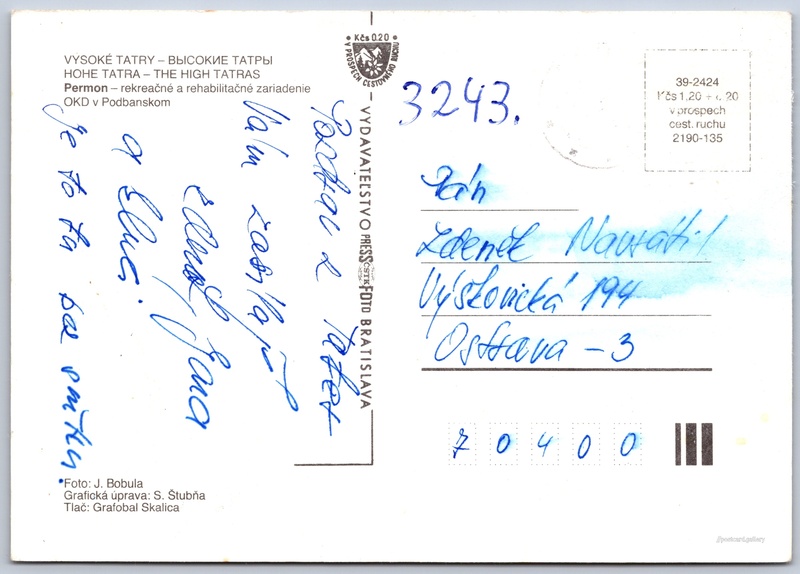 VYSOKÉ TATRY – ВЫСОКИЕ ТАТРЫ
HOHE TATRA – THE HIGH TATRAS
Permon – rekreačné a rehabilitačné zariadenie
OKD v Podbanskom
Kčs 0.20
V PROSPECH CESTOVNÉHO RUCHU
3243.
39-2424
Kčs 1.20 + 0.20
v prospech
cest. ruchu
2190-135
Pozdrav z Tater
Vám
Zdeněk, Jana
a
Je to tu bez sněhu.
VYDAVATEĽSTVO PRESSFOTO BRATISLAVA
ČSTK
Pán
Zdeněk Navrátil
Výškovická 194
Ostrava – 3
7 0 4 0 0
Foto: J. Bobula
Grafická úprava: S. Štubňa
Tlač: Grafobal Skalica
//postcard.gallery